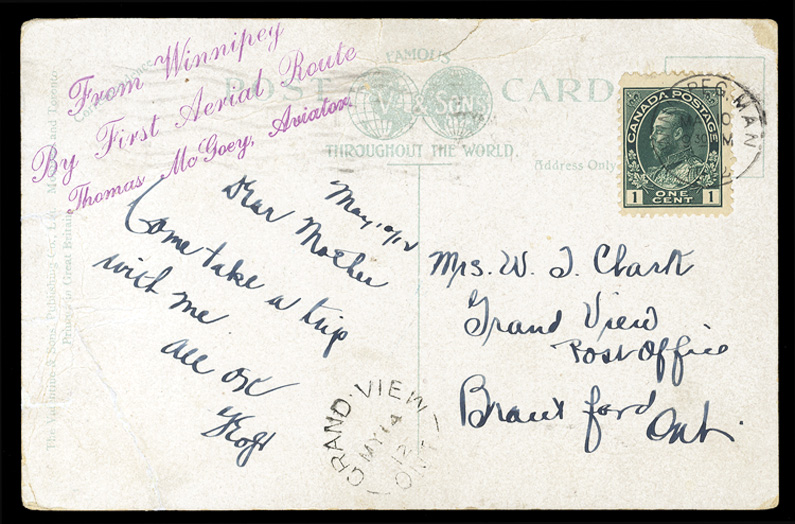 From Winnipeg
By First Aerial Route
Thomas McGoey, Aviator
FAMOUS
POST CARD
V & SONS
THROUGHOUT THE WORLD.
Correspondence
Address Only
The Valentine & Sons Publishing Co., Ltd. Montreal and Toronto
Printed in Great Britain
CANADA POSTAGE
1 ONE CENT 1
PEG. MAN
May 10/12
Dear Mother
Come take a trip
with me
all OK
Mrs. W. J. Clark
Grand View
Post Office
Brantford
Ont.
GRAND VIEW
MY 14
12
ONT